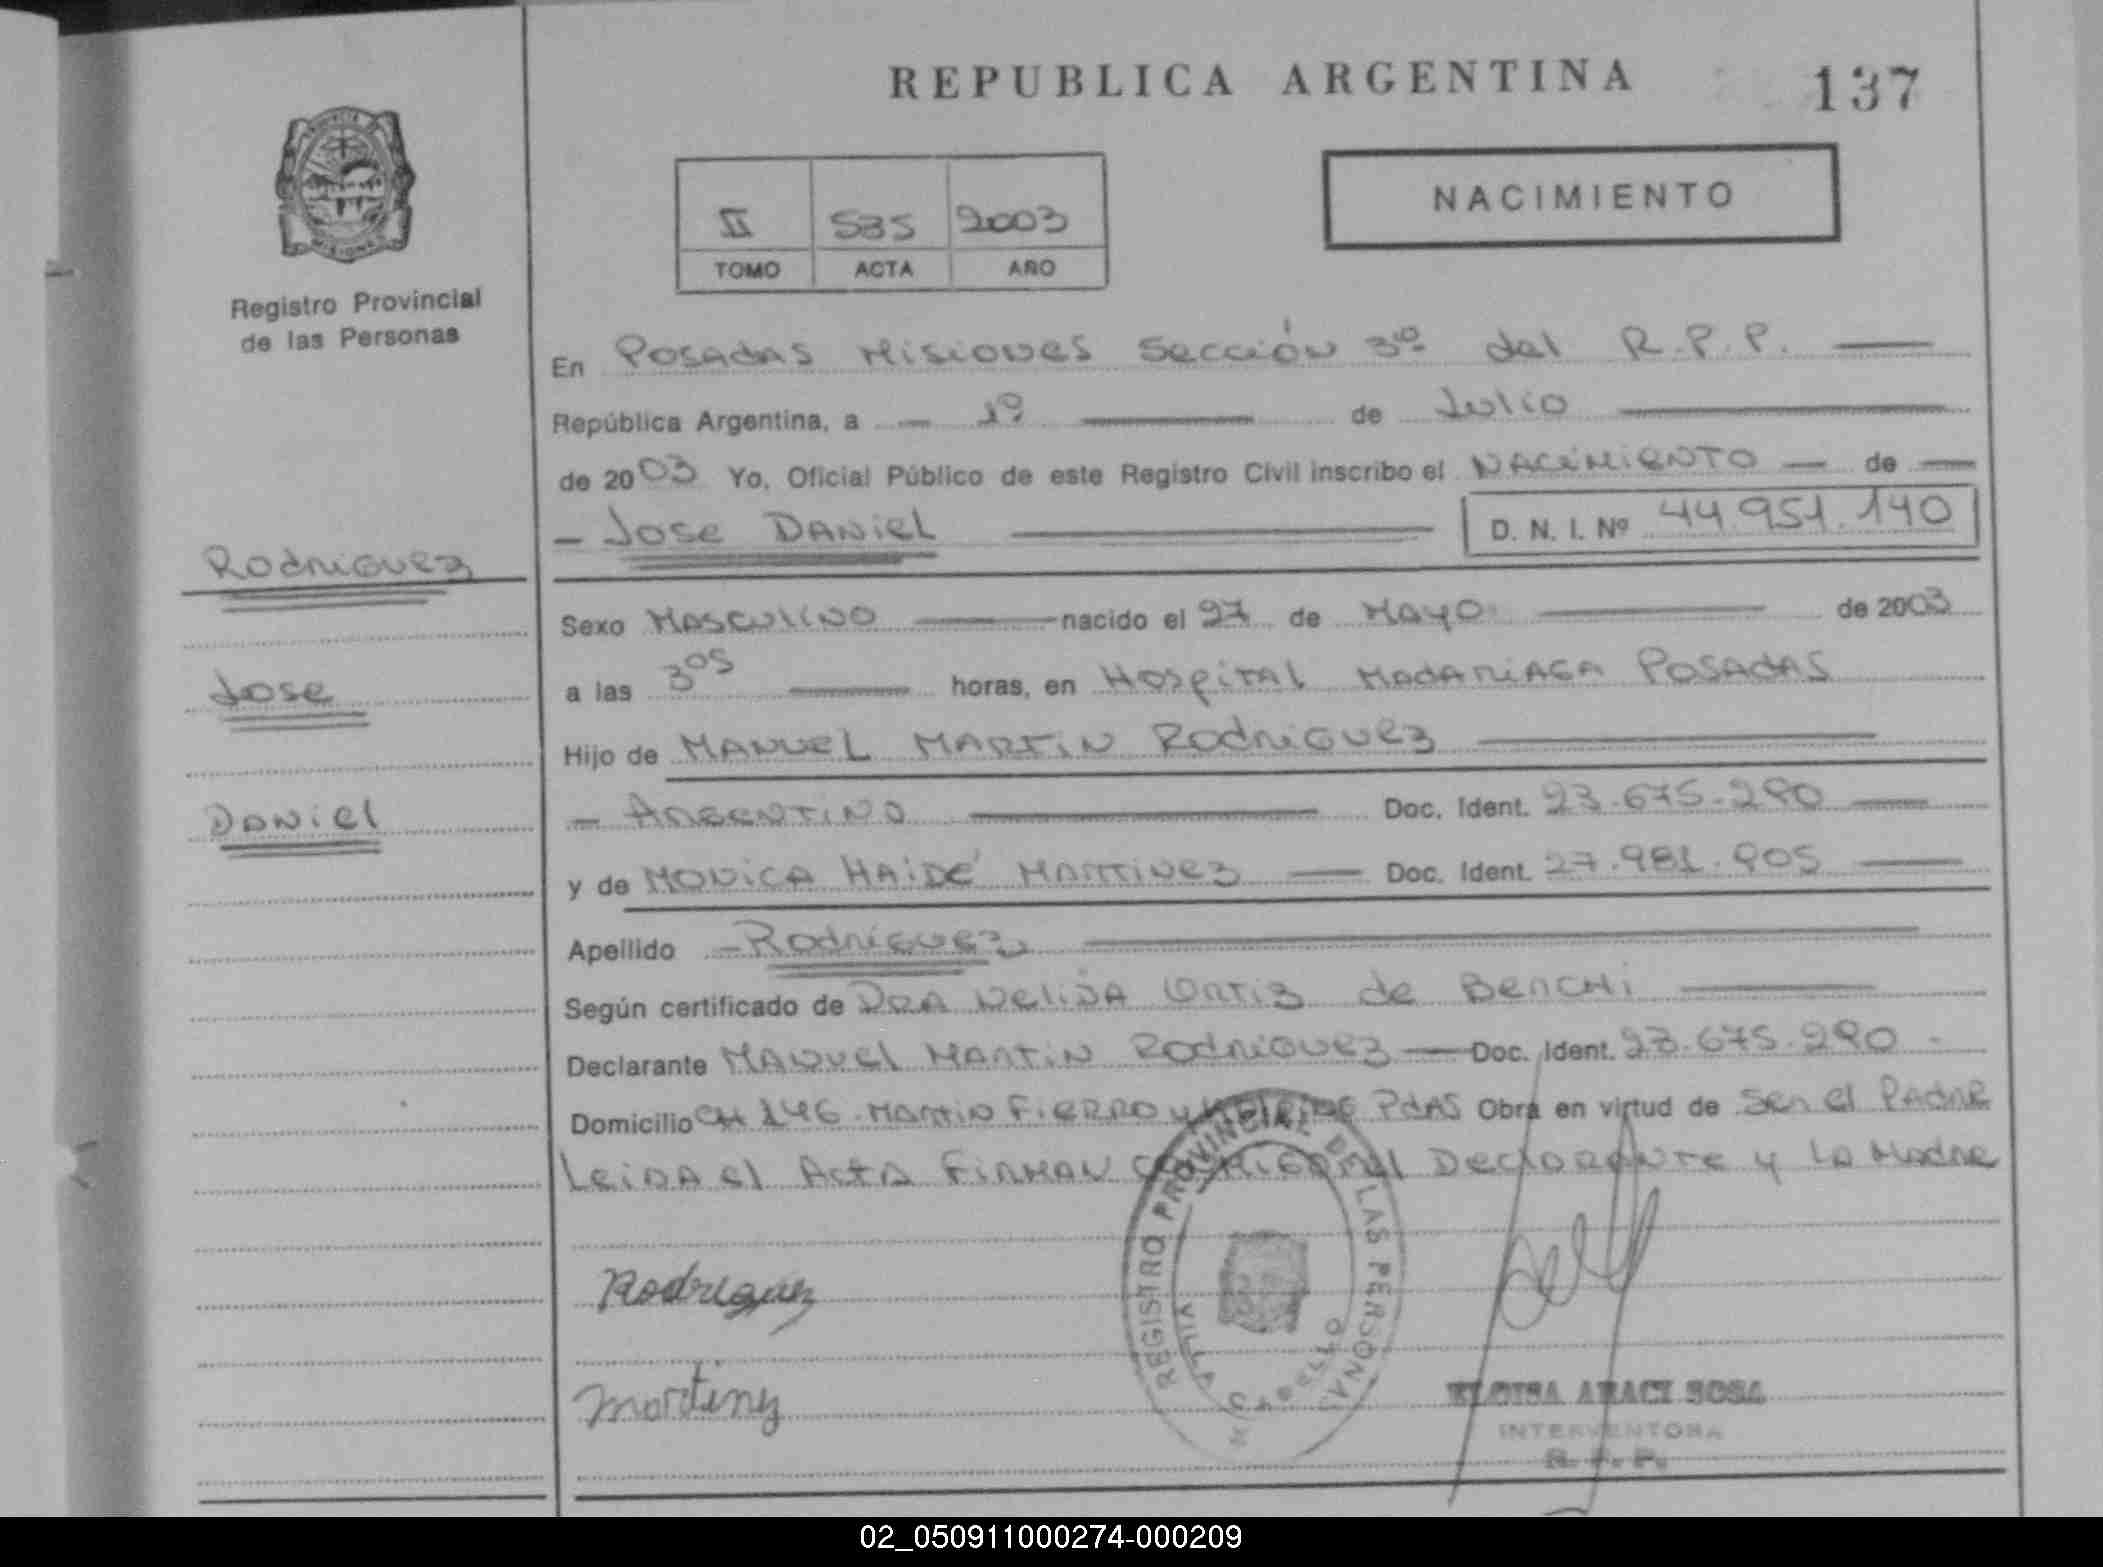 REPUBLICA ARGENTINA
137
NACIMIENTO
II 535 2003
TOMO ACTA AÑO
Registro Provincial
de las Personas
Rodriguez
Jose
Daniel
En Posadas Misiones Sección 3º del R.P.P.
República Argentina, a 1º de Julio
de 2003 Yo, Oficial Público de este Registro Civil inscribo el NACIMIENTO de
Jose DANIEL
D. N. I. Nº 44.951.140
Sexo MASCULINO nacido el 27 de MAYO de 2003
a las 3 05 horas, en Hospital MADARIAGA POSADAS
Hijo de MANUEL MARTIN RodriGuez
ARGENTINO Doc. Ident. 23.675.290
y de MONICA HAIDÉ MARTINEZ Doc. Ident. 27.981.905
Apellido Rodriguez
Según certificado de DRA NELIDA ORTIZ de BENCHI
Declarante MANUEL MARTIN RODRIGUEZ Doc. Ident. 23.675.290
Domicilio CH 146 MARTIN FIERRO y PdAS Obra en virtud de Ser el PADRE
LeiDA el ActA FIRMAN el DeclARANTE y LA MADRE
Rodriguez
REGISTRO PROVINCIAL DE LAS PERSONAS
VILLA CABELLO
ELOISA ARACI SOSA
INTERVENTORA
R. P. P.
02_050911000274-000209